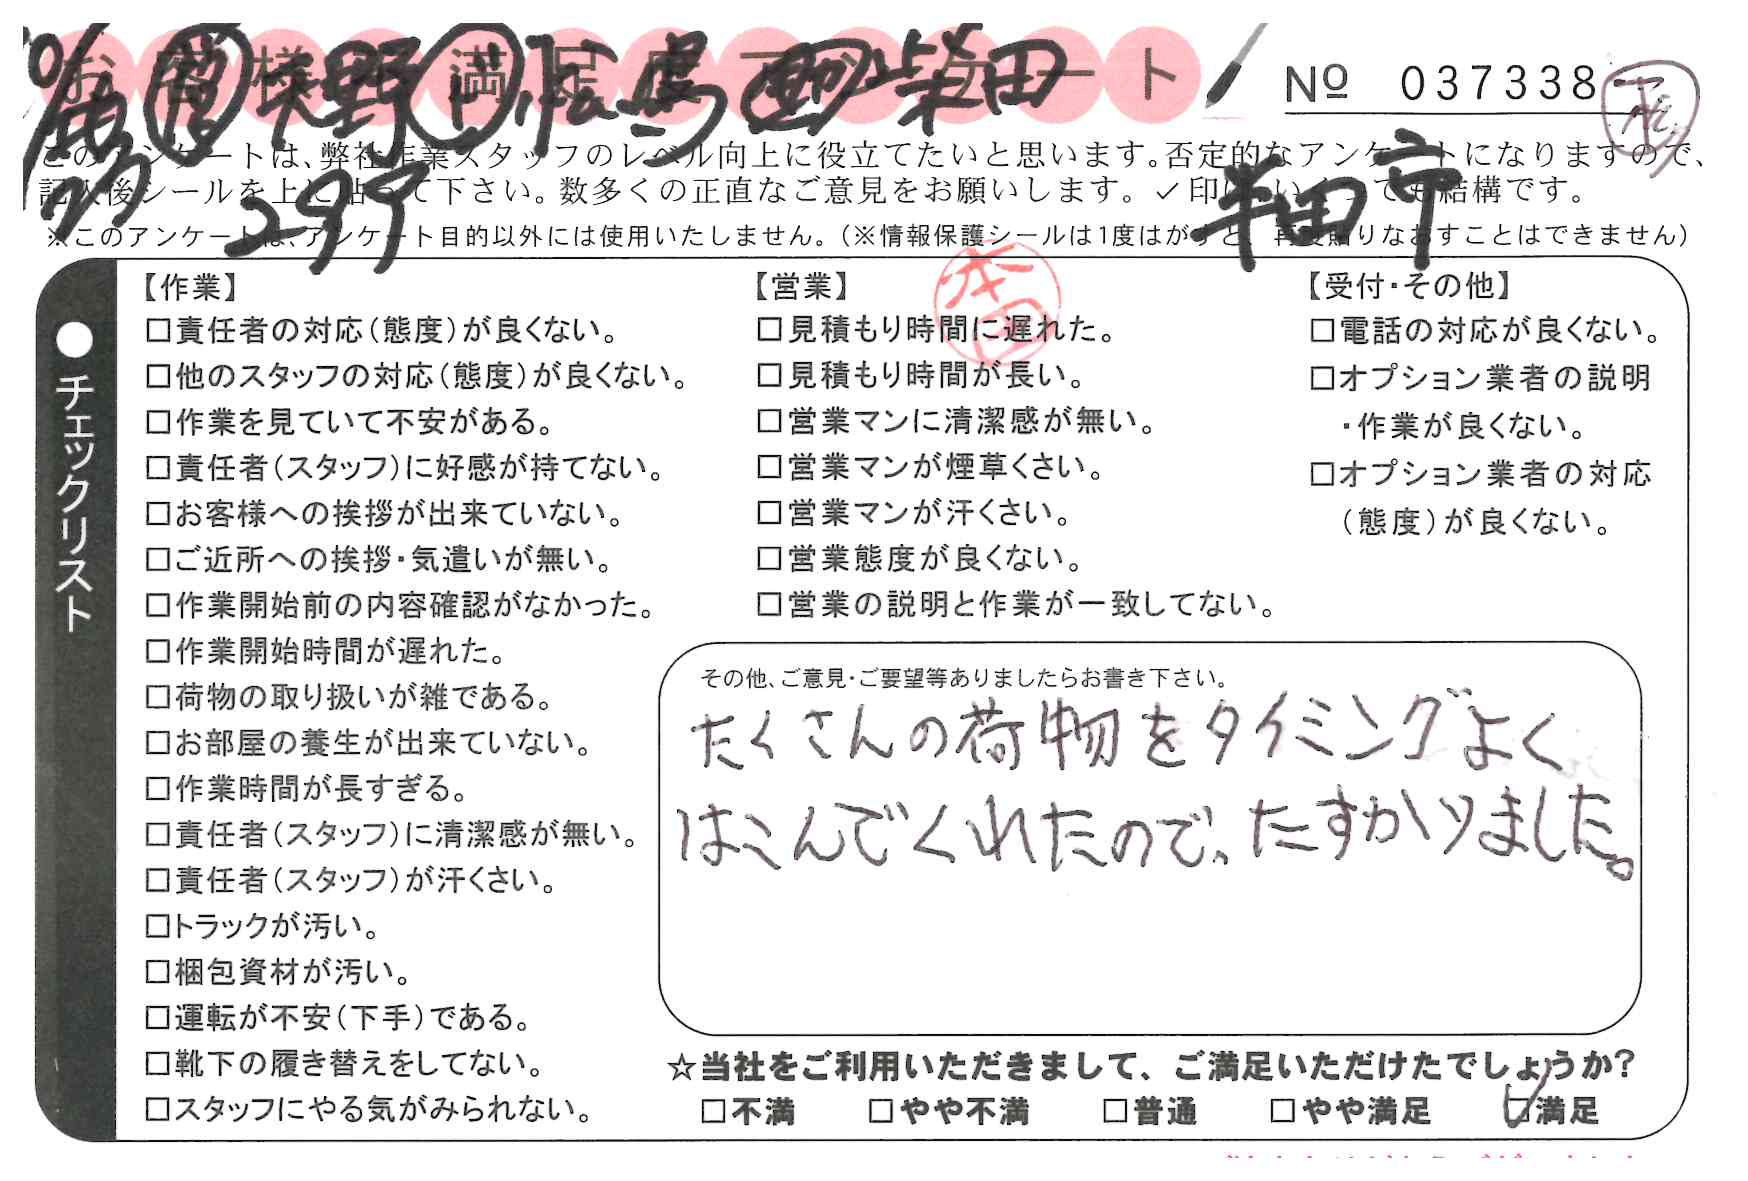 お客様満足度アンケート
№ 037338
矢野 広島 西 柴田
29才
半田市
このアンケートは、弊社作業スタッフのレベル向上に役立てたいと思います。否定的なアンケートになりますので、
記入後シールを上に貼って下さい。数多くの正直なご意見をお願いします。✓印はいくつでも結構です。
※このアンケートは、アンケート目的以外には使用いたしません。（※情報保護シールは1度はがすと、再度貼りなおすことはできません）
●チェックリスト
【作業】
□責任者の対応（態度）が良くない。
□他のスタッフの対応（態度）が良くない。
□作業を見ていて不安がある。
□責任者（スタッフ）に好感が持てない。
□お客様への挨拶が出来ていない。
□ご近所への挨拶・気遣いが無い。
□作業開始前の内容確認がなかった。
□作業開始時間が遅れた。
□荷物の取り扱いが雑である。
□お部屋の養生が出来ていない。
□作業時間が長すぎる。
□責任者（スタッフ）に清潔感が無い。
□責任者（スタッフ）が汗くさい。
□トラックが汚い。
□梱包資材が汚い。
□運転が不安（下手）である。
□靴下の履き替えをしてない。
□スタッフにやる気がみられない。
【営業】
本田
□見積もり時間に遅れた。
□見積もり時間が長い。
□営業マンに清潔感が無い。
□営業マンが煙草くさい。
□営業マンが汗くさい。
□営業態度が良くない。
□営業の説明と作業が一致してない。
【受付・その他】
□電話の対応が良くない。
□オプション業者の説明
・作業が良くない。
□オプション業者の対応
（態度）が良くない。
その他、ご意見・ご要望等ありましたらお書き下さい。
たくさんの荷物をタイミングよく
はこんでくれたので、たすかりました。
☆当社をご利用いただきまして、ご満足いただけたでしょうか？
□不満 □やや不満 □普通 □やや満足 ☑満足